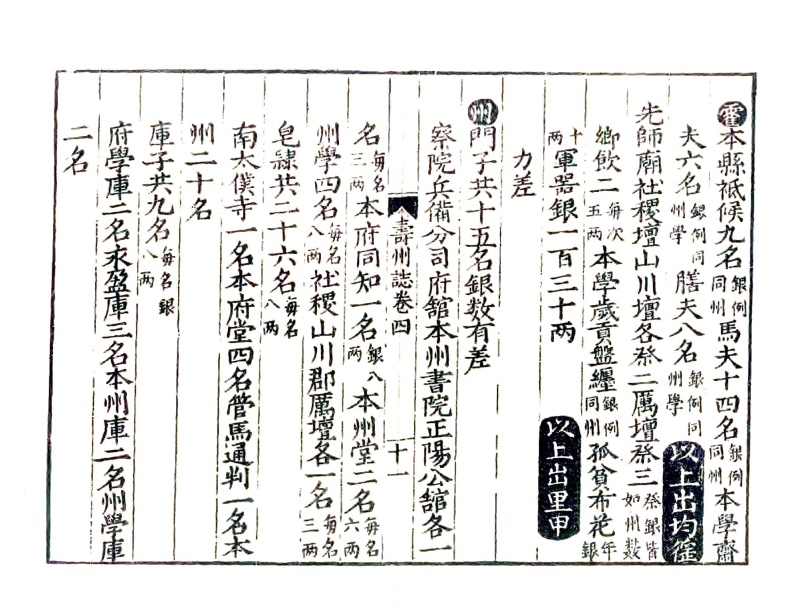 霍本縣祗候九名銀例同州馬夫十四名銀例同州本學齋
夫六名銀例同州學膳夫八名銀例同州學以上出均徭
先師廟社稷壇山川壇各祭二厲壇祭三祭銀皆如州數
鄉飲二每次五两本學歲貢盤纏銀例同州孤貧布花年銀
十两軍器銀一百三十两以上出里甲
力差
州門子共十五名銀数有差
察院兵備分司府舘本州書院正陽公舘各一
壽州誌卷四 十一
名每名三两本府同知一名銀八两本州堂二名每名六两
州學四名每名八两社稷山川郡厲壇各一名每名三两
皂隷共二十六名每名八两
南太僕寺一名本府堂四名管馬通判一名本
州二十名
庫子共九名每名銀八两
府學庫二名永盈庫三名本州庫二名州學庫
二名